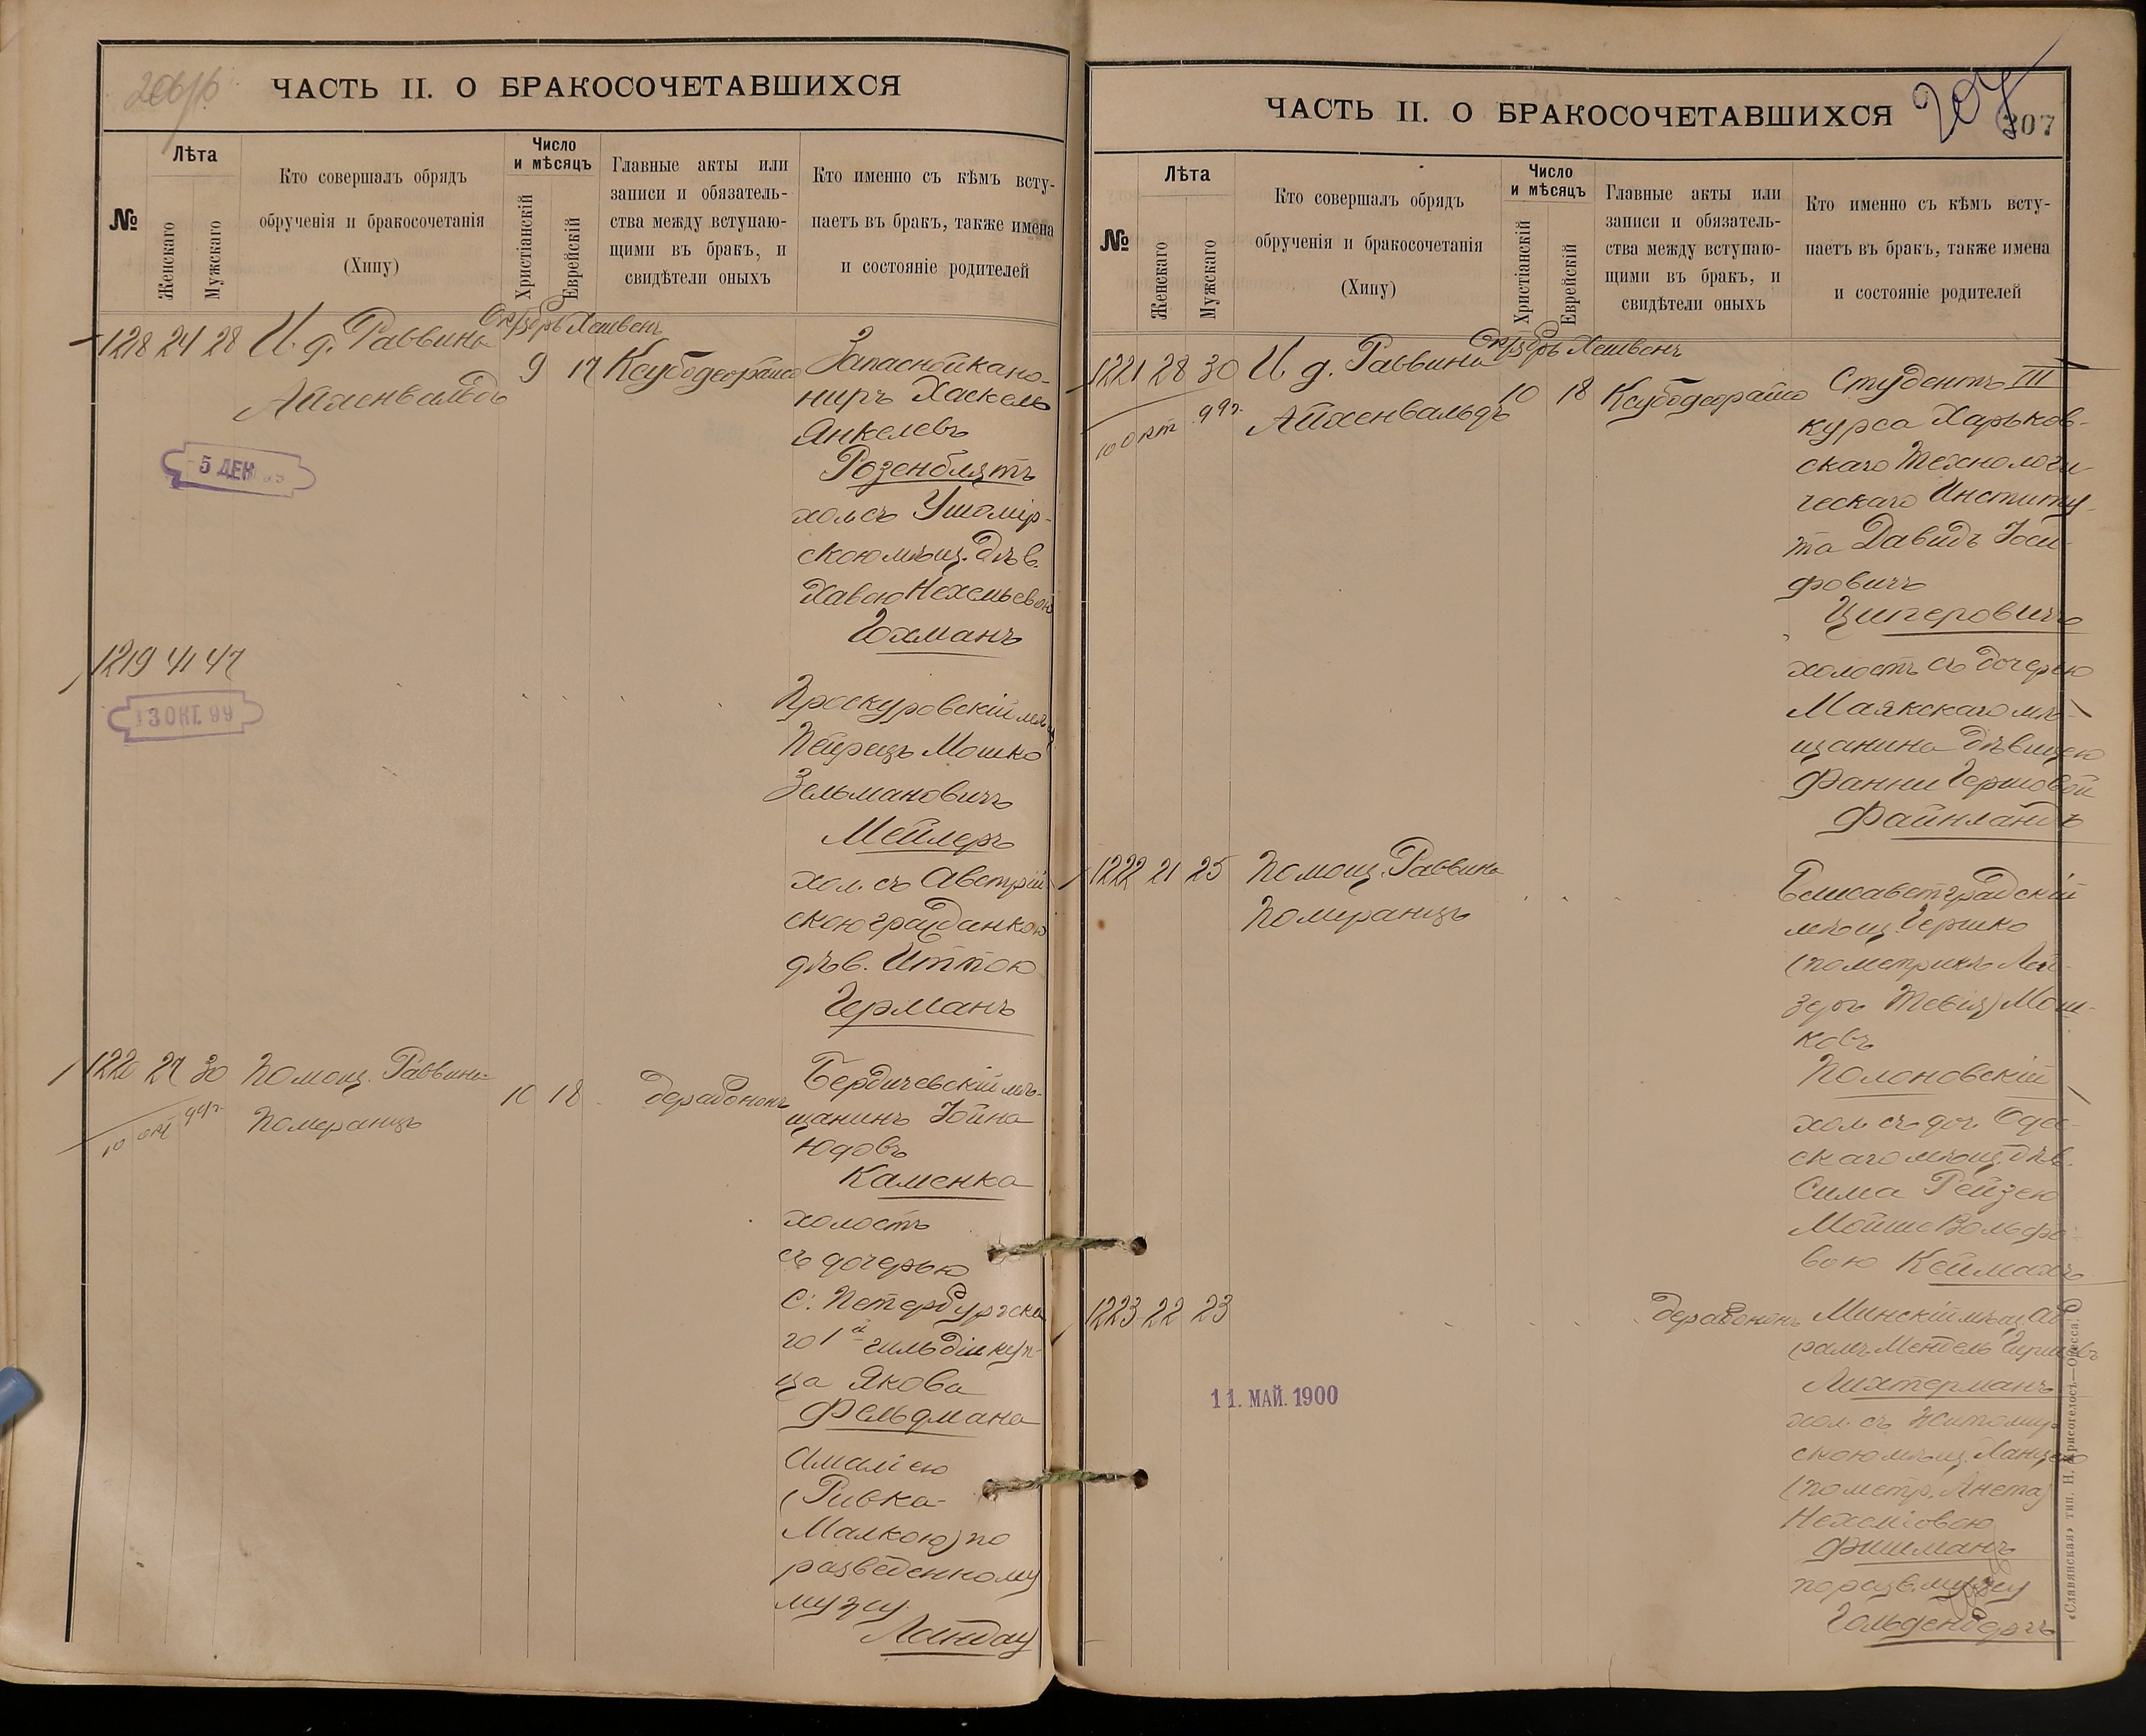 206/б
ЧАСТЬ II. О БРАКОСОЧЕТАВШИХСЯ
№
Лѣта
Женскаго
Мужскаго
Кто совершалъ обрядъ
обрученія и бракосочетанія
(Хипу)
Число
и мѣсяцъ
Христіанскій
Еврейскій
Главные акты или
записи и обязатель-
ства между вступаю-
щими въ бракъ, и
свидѣтели оныхъ
Кто именно съ кѣмъ всту-
паетъ въ бракъ, также имена
и состояніе родителей
128 24 28 И. д. Раввина
Айхенвальдъ
9 17
5 ДЕК
Запасной кано-
ниръ Хаскель
Янкелевъ
Розенблятъ
хол. съ Ушомір-
скою мѣщ. дѣв.
Хавою Нехемьевою
Гохманъ
1219 41 47
13 ОКТ. 99
Проскуровскій мѣщ
Пейрецъ Мошко
Зельмановичъ
Мейлеръ
хол. съ Австрій
скою гражданкою
дѣв. Иттою
Германъ
1220 27 30 Помощ. Раввина
Померанцъ
10 18
10 окт 99г.
Бердичевскій мѣ-
щанинъ Іойна
Юдовъ
Каменка
холостъ
съ дочерью
С. Петербургска
го 1й гильдіи куп-
ца Якова
Фельдмана
Амаліею
(Ривка-
Малкою) по
разведенному
мужу
Ландау
207
307
ЧАСТЬ II. О БРАКОСОЧЕТАВШИХСЯ
№
Лѣта
Женскаго
Мужскаго
Кто совершалъ обрядъ
обрученія и бракосочетанія
(Хипу)
Число
и мѣсяцъ
Христіанскій
Еврейскій
Главные акты или
записи и обязатель-
ства между вступаю-
щими въ бракъ, и
свидѣтели оныхъ
Кто именно съ кѣмъ всту-
паетъ въ бракъ, также имена
и состояніе родителей
1221 28 30 И. д. Раввина
Айхенвальдъ
10 18
10 окт 99г.
Студентъ III
курса Харьков-
скаго Технологи-
ческаго Институ-
та Давидъ Іоси-
фовичъ
Циперовичъ
холостъ съ дочерью
Маякскаго мѣ-
щанина дѣвицею
Фанни Гершовой
Файнландъ
1222 21 25 Помощ. Раввина
Померанцъ
Елисаветградскій
мѣщ. Гершко
(по метрикѣ Лей-
зеръ Тевія) Мош-
ковъ
Полоновскій
хол. съ доч. Одес-
скаго мѣщ. дѣв.
Сима Рейзею
Мойше Вольфо-
вою Кеймахъ
1223 22 23
11. МАЙ. 1900
Минскій мѣщ. Аб
рамъ Мендель Гиршовъ
Лихтерманъ
хол. съ Житомир
скою мѣщ. Ханцею
(по метр. Анета)
Нехеміовою
Фишманъ
по разв. мужу
Гольденбергъ
«Славянская» тип. Н. Хрисогелосъ—Одесса.